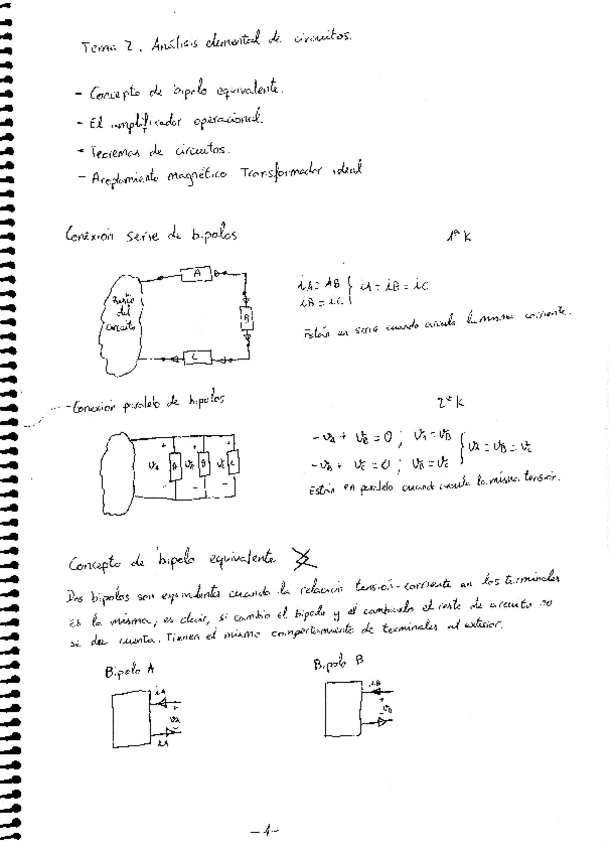 Tema 2. Análisis elemental de circuitos.
- Concepto de bipolo equivalente.
- El amplificador operacional.
- Teoremas de circuitos.
- Acoplamiento magnético Transformador ideal
Conexión serie de bipolos
1ª K
A
B
C
Resto del circuito
iB = iC } iA = iB = iC
Están en serie cuando circula la misma corriente.
- Conexión paralelo de bipolos
2ª K
VA A VB B VC C
- VA + VB = 0 ; VA = VB
- VB + VC = 0 ; VB = VC } VA = VB = VC
Están en paralelo cuando circula la misma tensión.
Concepto de bipolo equivalente
Dos bipolos son equivalentes cuando la relación tensión-corriente en los terminales
es la misma, es decir, si cambio el bipolo y el resto de circuito no
se da cuenta. Tienen el mismo comportamiento de terminales al exterior.
Bipolo A
iA
+
VA
-
iA
Bipolo B
iB
+
VB
-
-1-